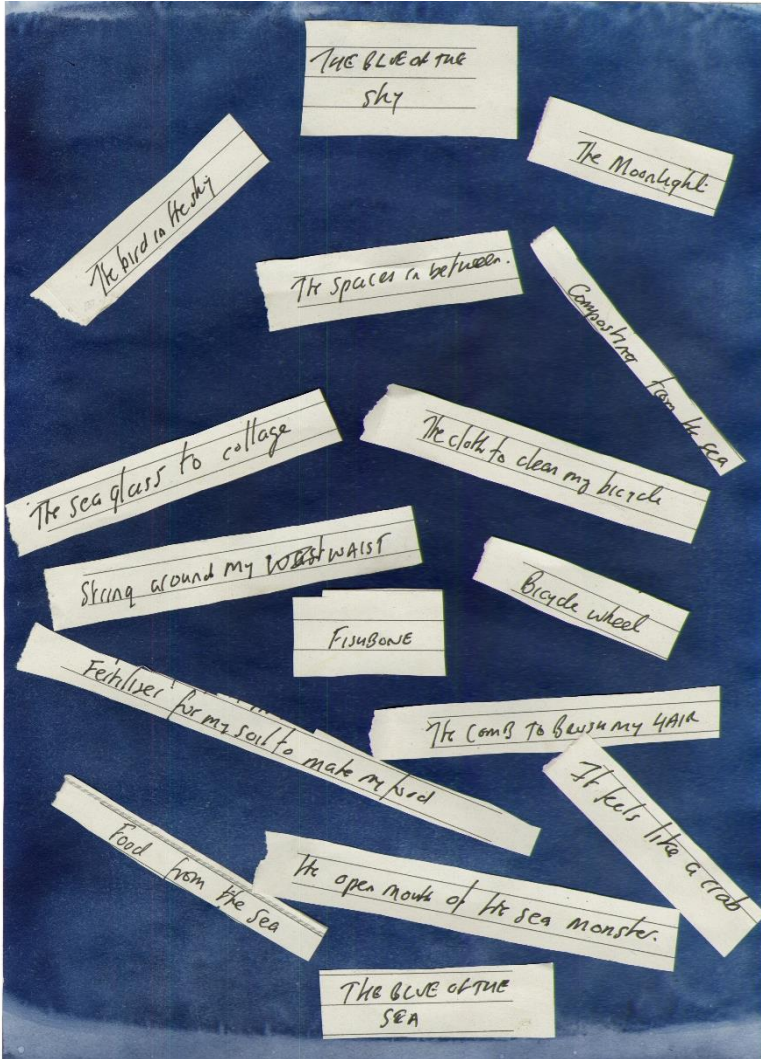 THE BLUE OF THE
sky
The Moonlight.
The bird in the sky
The spaces in between.
Composting from the sea
The sea glass to collage
The cloth to clean my bicycle
String around my WAIST
Bicycle wheel
FISHBONE
Fertiliser for my soil to make my food
The COMB TO BRUSH MY HAIR
It feels like a crab
Food from the sea
The open mouth of the sea monster.
THE BLUE OF THE
SEA